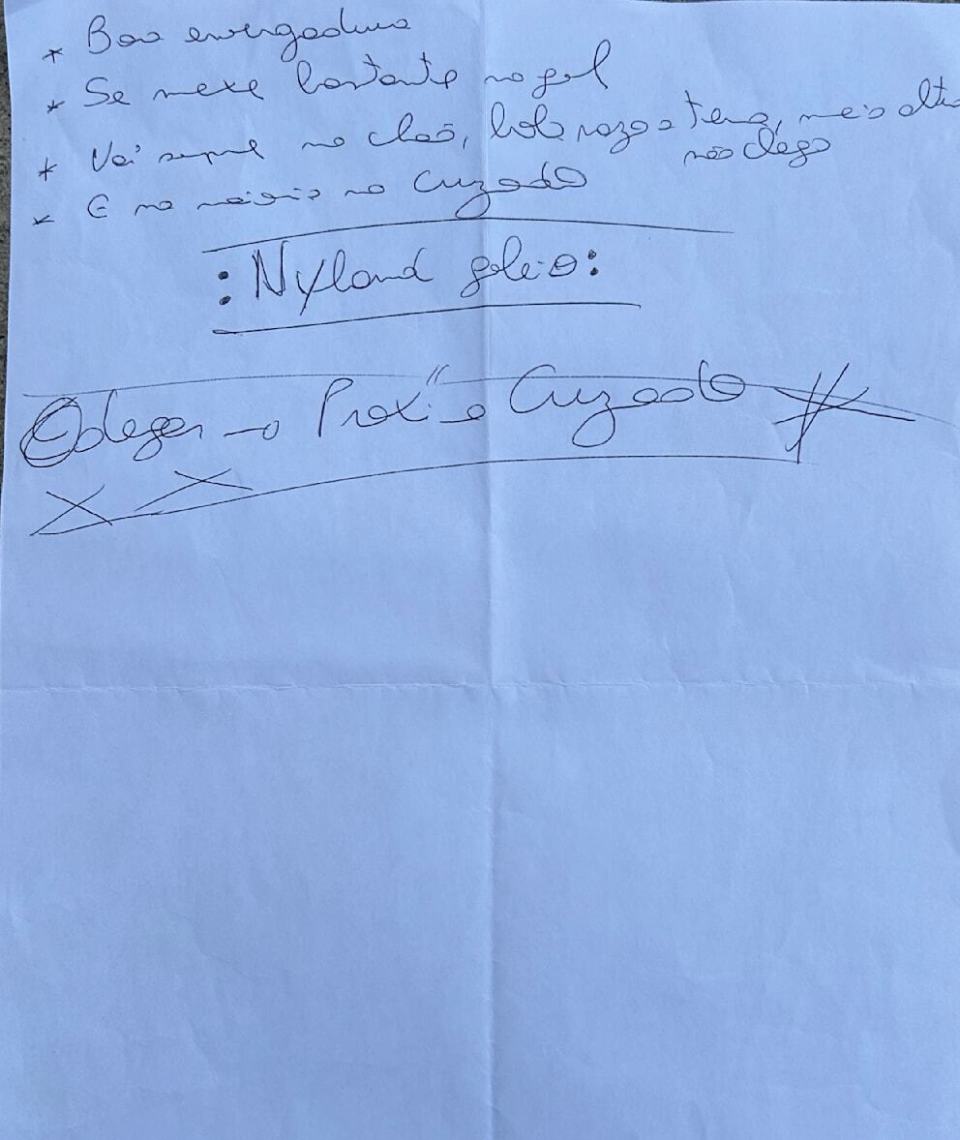 * Boa envergadura
* Se mexe bastante no gol
* Vai sempre no chão, bola raza a terra, meio alta
não chega
* E na maioria no Cruzado
: Nyland goleiro:
Odegar → Cruzado